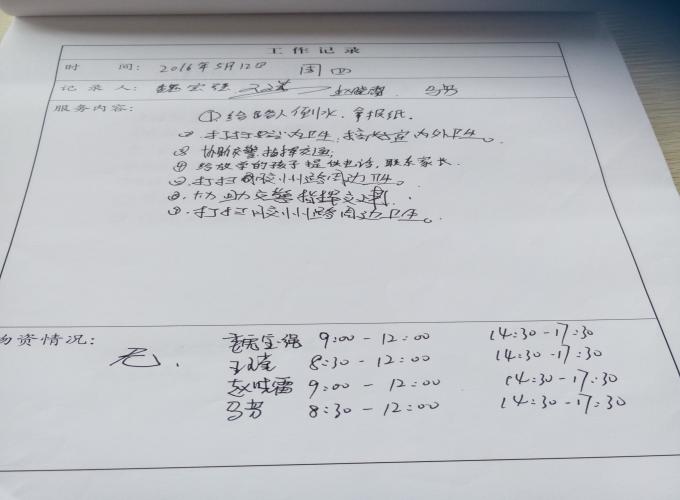 工作记录
时 间: 2016年5月12日 周四
记录人: 魏宝强 赵晓霞 马芳
服务内容: ①给路人倒水、拿报纸。
②打扫 内卫生, 内外卫生。
③协助交警指挥交通;
④给放学的孩子提供电话,联系家长.
⑤.打扫胶州路周边卫生。
⑥.协助交警指挥交通.
⑦.打扫胶州路周边卫生。
物资情况: 无. 魏宝强 9:00-12:00 14:30-17:30
8:30-12:00 14:30-17:30
赵晓霞 9:00-12:00 14:30-17:30
马芳 8:30-12:00 14:30-17:30